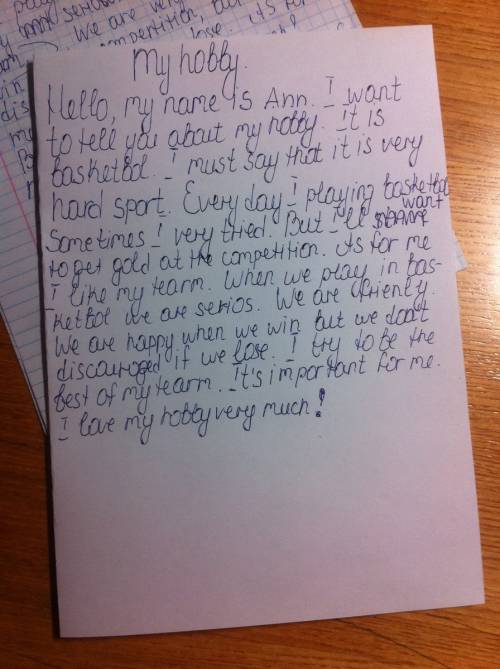 My hobby.
Hello, my name is Ann. I want
to tell you about my hobby. It is
basketbol. I must say that it is very
hard sport. Every day I playing basketbol
Sometimes I very tried. But I'll want
to get gold at the competition. As for me
I like my tearm. When we play in bas-
ketbol we are serios. We are friently.
We are happy when we win but we don't
discouraged if we lose. I try to be the
best of my tearm. It's important for me.
I love my hobby very much!